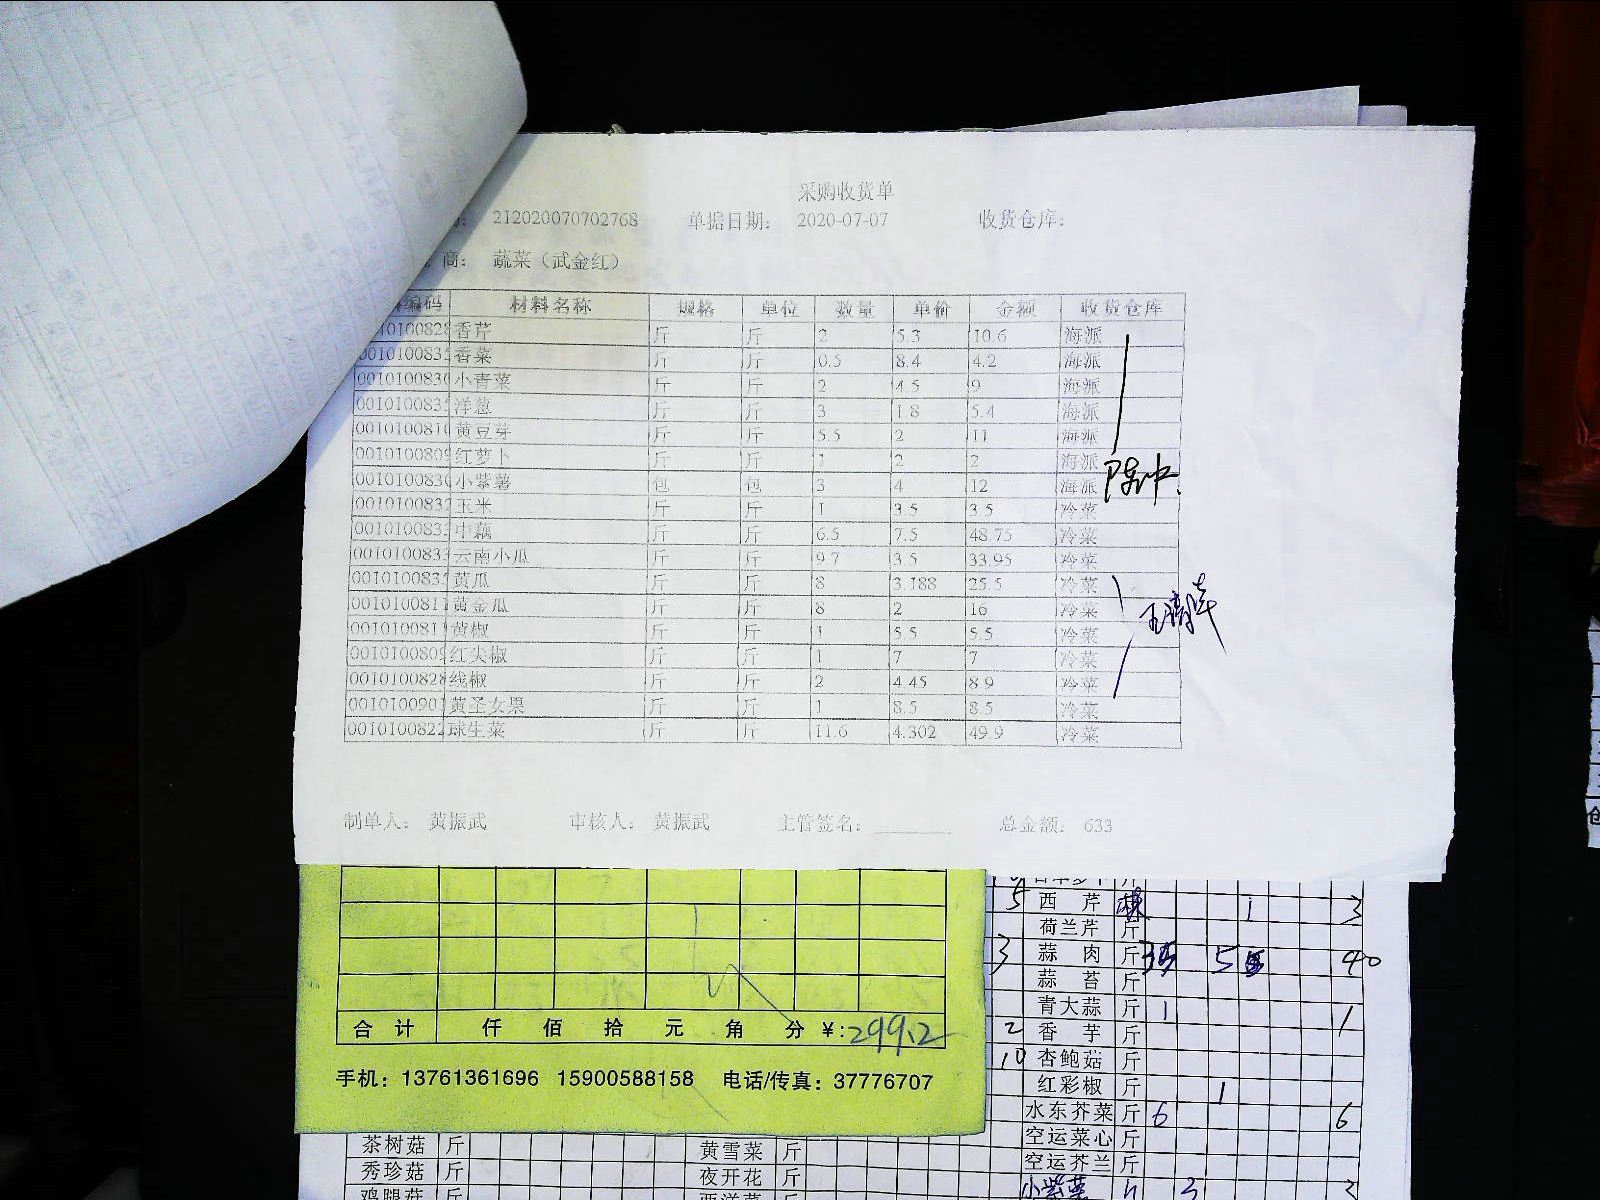 采购收货单
212020070702768 单据日期: 2020-07-07 收货仓库:
商: 蔬菜（武金红）
编码 材料名称 规格 单位 数量 单价 金额 收货仓库
0010100828 香芹 斤 斤 2 5.3 10.6 海派
001010083 香菜 斤 斤 0.5 8.4 4.2 海派
001010083 小青菜 斤 斤 2 4.5 9 海派
001010083 洋葱 斤 斤 3 1.8 5.4 海派
001010081 黄豆芽 斤 斤 5.5 2 11 海派
001010080 红萝卜 斤 斤 1 2 2 海派
001010083 小紫薯 包 包 3 4 12 海派
001010083 玉米 斤 斤 1 3.5 3.5 冷菜
001010083 中藕 斤 斤 6.5 7.5 48.75 冷菜
001010083 云南小瓜 斤 斤 9.7 3.5 33.95 冷菜
001010083 黄瓜 斤 斤 8 3.188 25.5 冷菜
001010081 黄金瓜 斤 斤 8 2 16 冷菜
001010081 黄椒 斤 斤 1 5.5 5.5 冷菜
001010080 红尖椒 斤 斤 1 7 7 冷菜
001010082 线椒 斤 斤 2 4.45 8.9 冷菜
001010090 黄圣女果 斤 斤 1 8.5 8.5 冷菜
001010082 球生菜 斤 斤 11.6 4.302 49.9 冷菜
制单人: 黄振武 审核人: 黄振武 主管签名: 总金额: 633
合计 仟 佰 拾 元 角 分 ¥: 299.2
手机: 13761361696 15900588158 电话/传真: 37776707
5 西芹 1 3
荷兰芹 斤
3 蒜肉 斤 35 5 40
蒜苔 斤
青大蒜 斤 1 1
2 香芋 斤
10 杏鲍菇 斤
红彩椒 斤 1
水东芥菜 斤 6 6
空运菜心 斤
空运芥兰 斤
小紫菜 3 3
茶树菇 斤 黄雪菜 斤
秀珍菇 斤 夜开花 斤
鸡腿菇 斤 西洋菜 斤